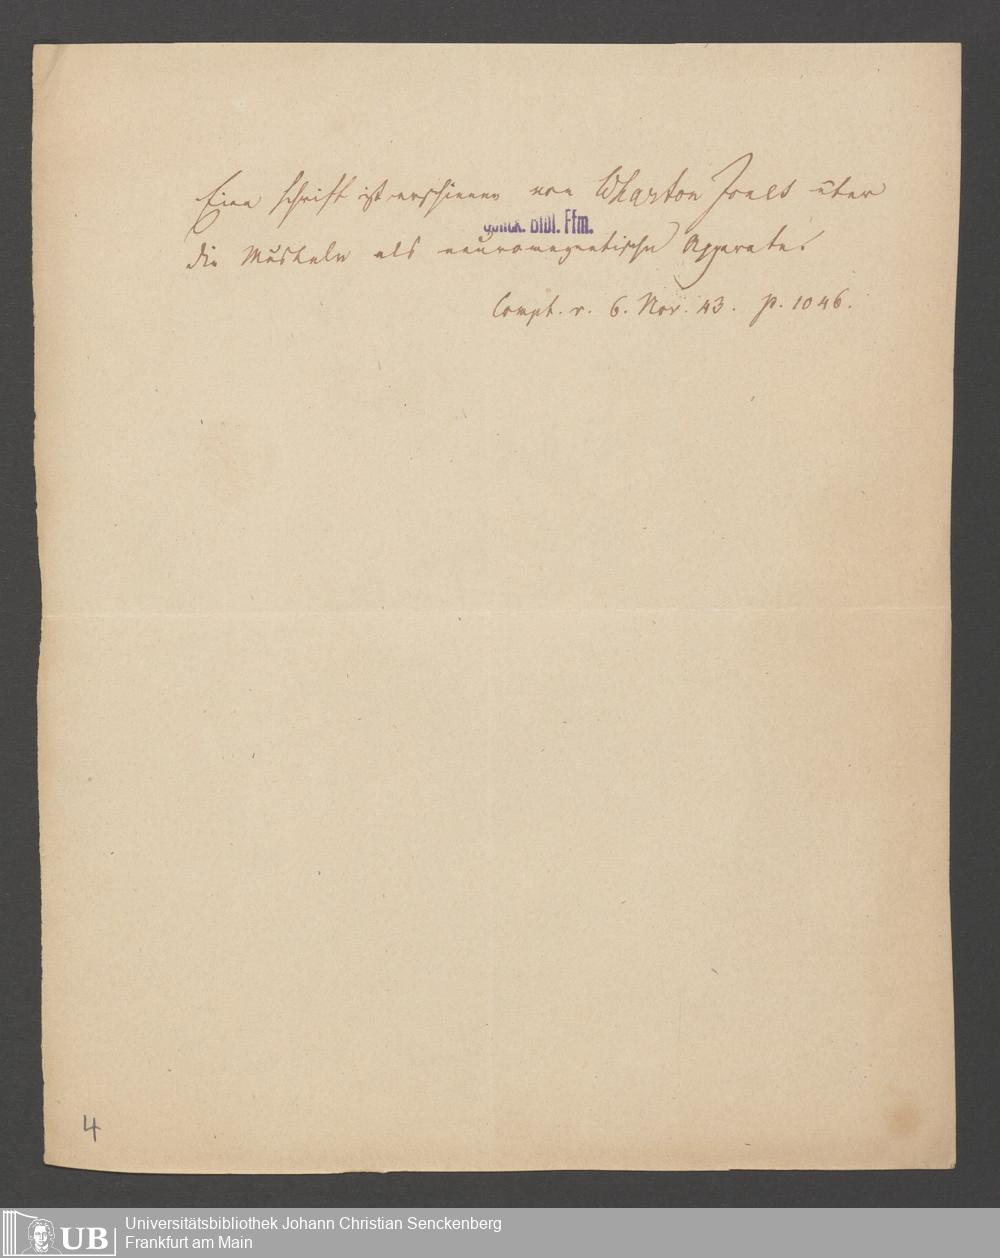 Eine Schrift ist erschienen von Wharton Jones über
Senck. Bibl. Ffm.
die Muskeln als neuromagnetische Apparate.
Compt. r. 6. Nov. 43. p. 1046.
4
UB
Universitätsbibliothek Johann Christian Senckenberg
Frankfurt am Main